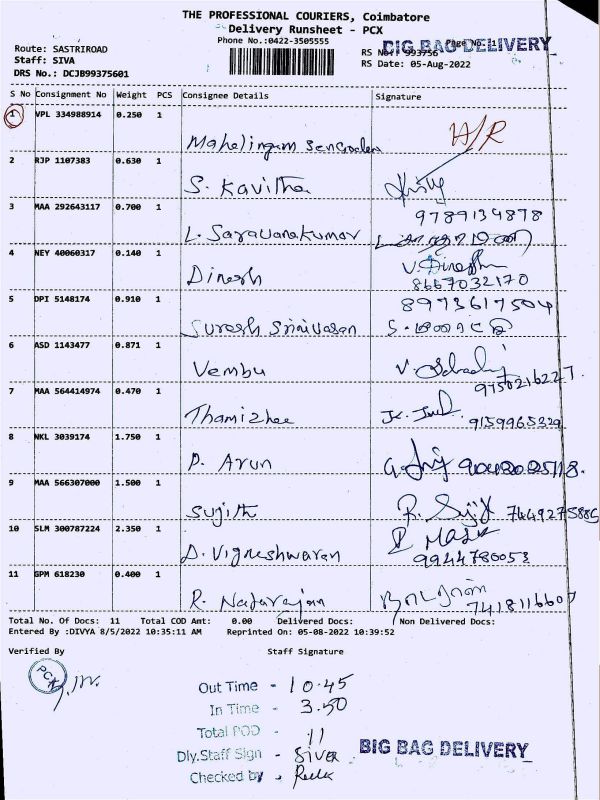 THE PROFESSIONAL COURIERS, Coimbatore
Delivery Runsheet - PCX
Phone No.:0422-3505555
BIG BAG DELIVERY
Route: SASTRIROAD
Staff: SIVA
DRS No.: DCJB99375601
RS No.: 993756
RS Date: 05-Aug-2022
S No Consignment No Weight PCS Consignee Details Signature
1 VPL 334988914 0.250 1
Mahalingam A/R
2 RJP 1107383 0.630 1
S. Kavitha
9789134878
3 MAA 292643117 0.700 1
L. Saravanakumar
4 NEY 40060317 0.140 1 V. Dinesh
Dinesh 8667032170
5 DPI 5148174 0.910 1 8973617504
Suresh Srinivasan
6 ASD 1143477 0.871 1
Vembu
9750216227.
7 MAA 564414974 0.470 1
Thamizhee 9159965329
8 NKL 3039174 1.750 1
P. Arun
9 MAA 566307000 1.500 1
Sujith R. Sujith
10 SLM 300787224 2.350 1
D. Vigneshwaran 9944780053
11 GPM 618230 0.400 1
R. Natarajan
Total No. Of Docs: 11 Total COD Amt: 0.00 Delivered Docs: Non Delivered Docs:
Entered By :DIVYA 8/5/2022 10:35:11 AM Reprinted On: 05-08-2022 10:39:52
Verified By Staff Signature
PCX
Out Time - 10.45
In Time - 3.50
Total POD - 11
Dly.Staff Sign - SIVER
Checked by -
BIG BAG DELIVERY